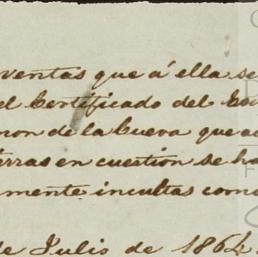 ventas que á ella se
el Certificado del
mon de la Cueva que
erras en cuestión se ha
mente incultas como
de Julio de 1864.